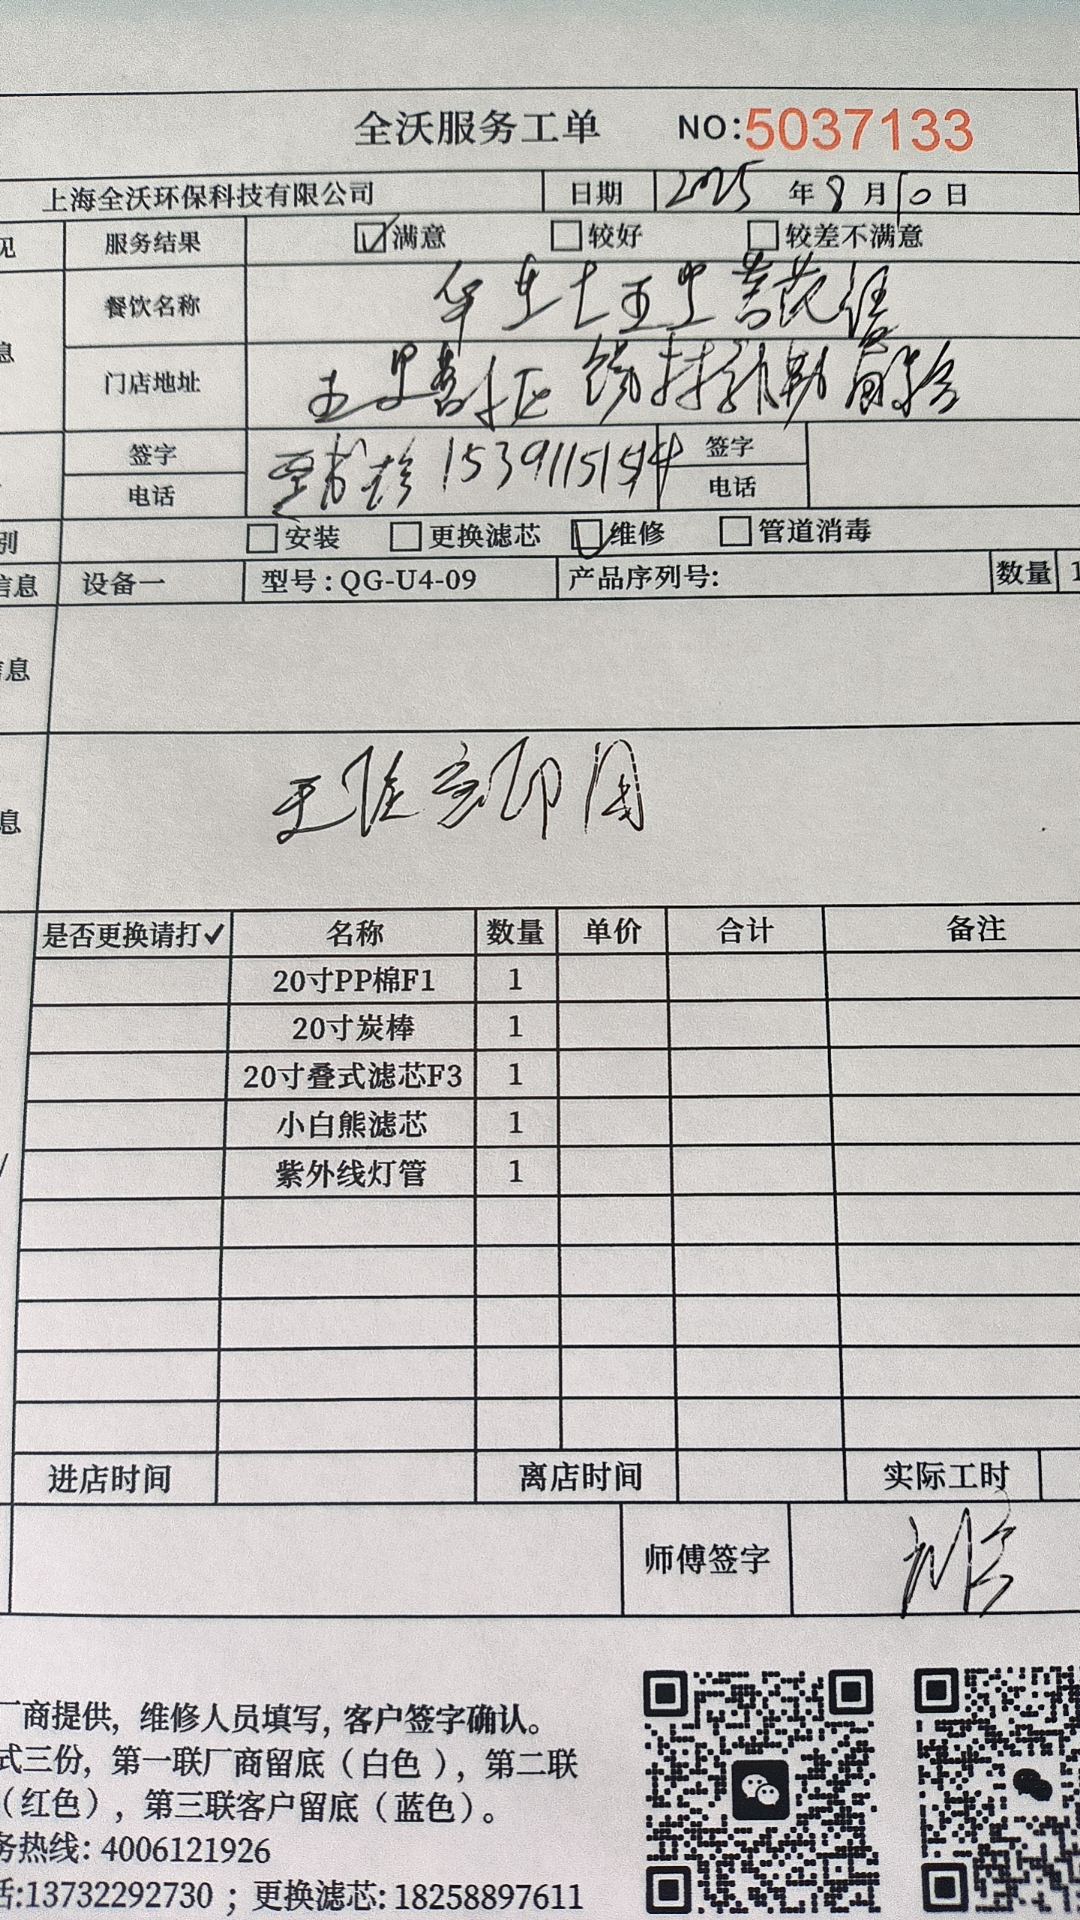 全沃服务工单 NO:5037133
上海全沃环保科技有限公司 日期 2025 年 8 月 10 日
见 服务结果 满意 较好 较差不满意
餐饮名称
息
门店地址
签字 签字
15391151514
电话 电话
别 安装 更换滤芯 维修 管道消毒
信息 设备一 型号:QG-U4-09 产品序列号: 数量 1
信息
息
是否更换请打✓ 名称 数量 单价 合计 备注
20寸PP棉F1 1
20寸炭棒 1
20寸叠式滤芯F3 1
小白熊滤芯 1
紫外线灯管 1
进店时间 离店时间 实际工时
师傅签字
厂商提供, 维修人员填写, 客户签字确认。
式三份, 第一联厂商留底(白色), 第二联
(红色), 第三联客户留底(蓝色)。
务热线: 4006121926
话:13732292730 ; 更换滤芯: 18258897611